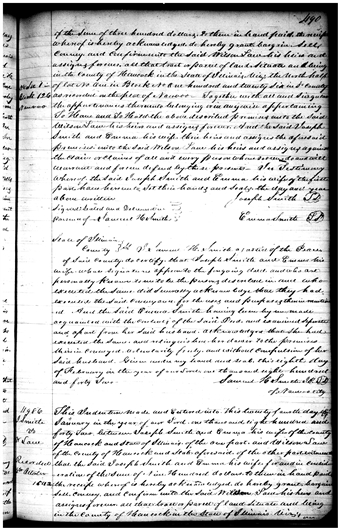 490
of the sum of three hundred dollars, to them in hand paid, the receipt
whereof is hereby acknowledged do hereby grant bargain Sell,
Convey and Confirm unto the said Wilson Law his heirs and
assigns forever, all that tract or parcel of land situate and being
in the County of Hancock in the State of Illinois, Viz; The North half
of lot No in Block No One hundred and twenty six in S County
as represented on the plot of Nauvoo. Together with all and Singular
the appurtenances thereunto belonging or in anywise appertaining
To Have and To Hold the above described premises unto the Said
Wilson Law his heirs and assigns forever, And the Said Joseph
Smith and Emma his wife their heirs and assigns the aforesaid
premises unto the Said Wilson Law his heirs and assigns against
the claim or claims of all and every person whomsoever do and will
warrant and forever defend by these presents. In Testimony
whereof the Said Joseph Smith and Emma his wife of the first
part, have hereunto Set their hands and Seals the day and year
above written
Joseph Smith
Signed Sealed and Delivered in
presence of Samuel H. Smith
Emma Smith
State of Illinois
County I Samuel H. Smith a Justice of the Peace
of Said County do certify, that Joseph Smith and Emma his
wife whose signatures appear to the foregoing deed and who are
personally known to me to be the persons described in and who
executed the same, did severally acknowledge that they had
executed the Said Conveyance for the uses and purposes therein mentioned
And the Said Emma Smith having been by me made
acquainted with the contents of the Said deed and examined separate
and apart from her Said husband acknowledged that She had
executed the same, and relinquished her dower to the premises
therein conveyed, voluntarily freely, and without compulsion of her
Said husband. Given under my hand and Seal this eighth day
of February in the year of our Lord one thousand eight hundred
and forty two.
Samuel H. Smith J.P.
of Nauvoo City
11966
J Smith
To
W Law
Recorded
This Indenture Made and Entered into This twenty first day of
January in the year of our Lord, one thousand eight hundred and
forty two, between Joseph Smith and Emma his wife of the County
of Hancock and State of Illinois of the one part, and Wilson Law
of the County of Hancock and State aforesaid of the other part witnesseth
that the said Joseph Smith and Emma his wife for and in consideration
of the sum of Nine Hundred dollars to them in hand paid
the receipt whereof is hereby acknowledged do hereby grant, bargain
Sell, Convey and Confirm unto the said Wilson Law his heirs and
assigns forever all that tract or parcel of land situate and being
in the County of Hancock in the State of Illinois Viz;